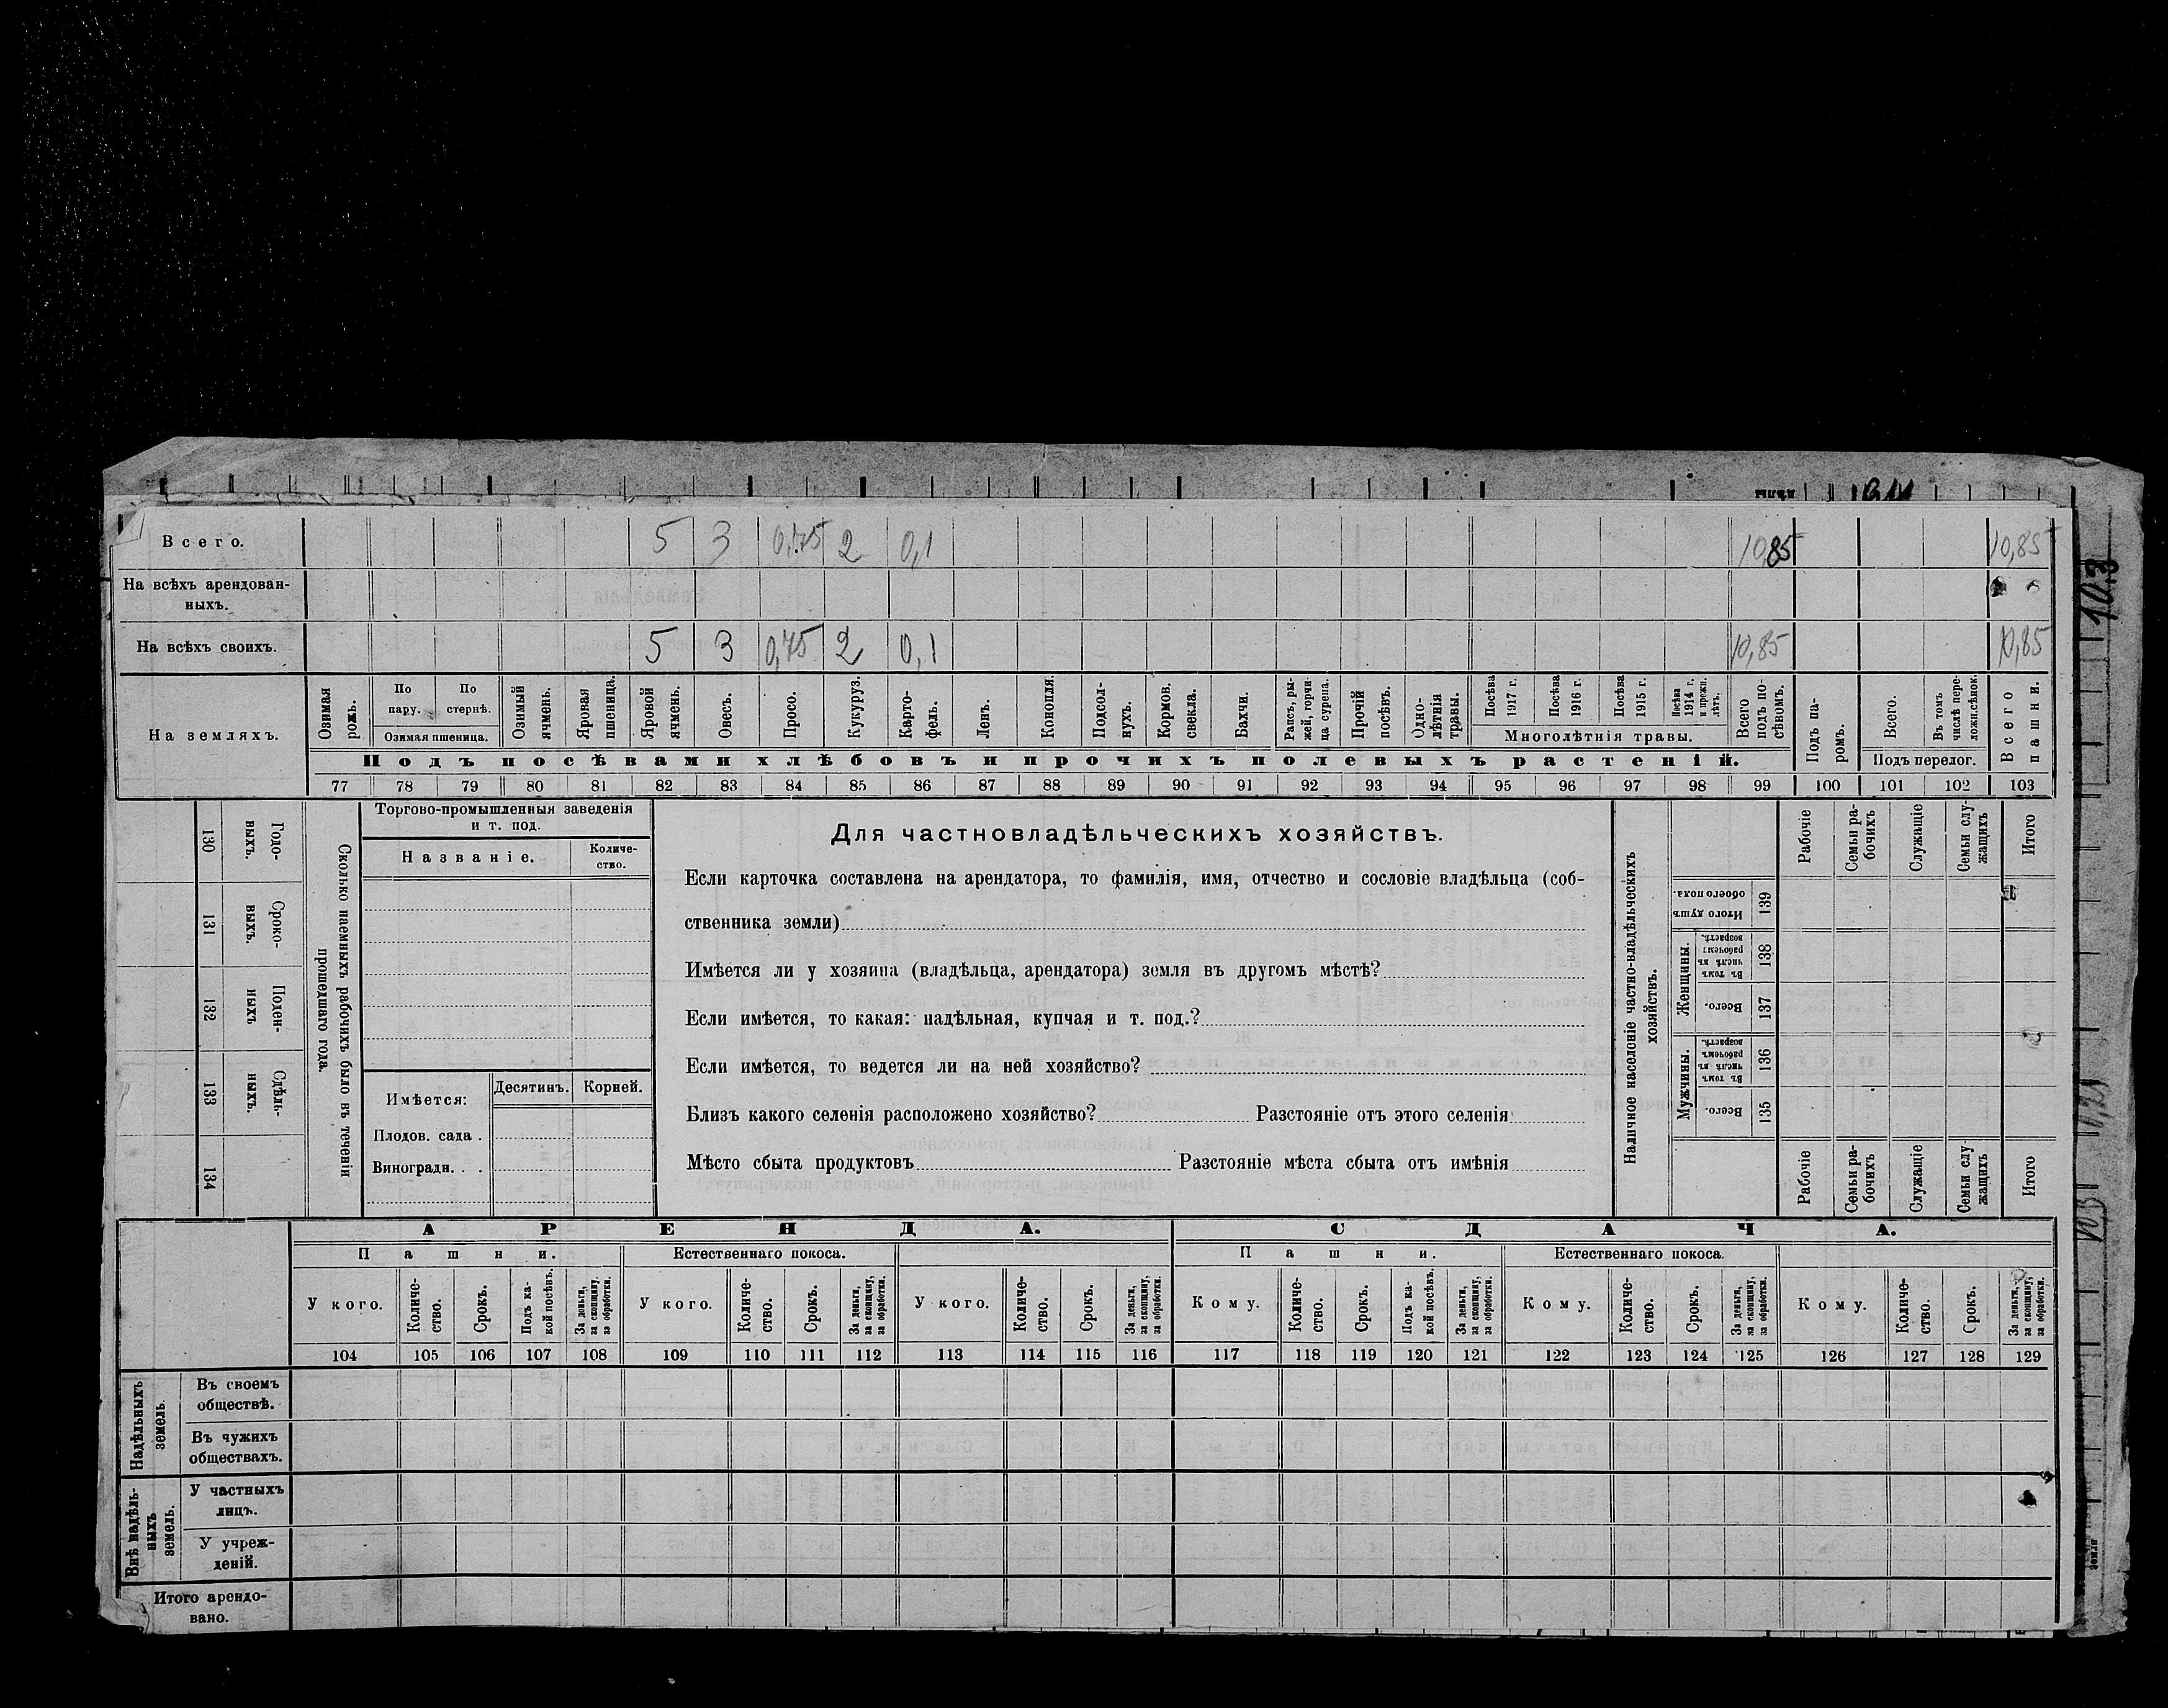 Всего. 5 3 0,75 2 0,1 10,85 10,85
На всѣхъ арендован-
ныхъ.
На всѣхъ своихъ. 5 3 0,75 2 0,1 10,85 10,85
На земляхъ.
Озимая рожь.
По пару.
По стернѣ.
Озимая пшеница.
Озимый ячмень.
Яровая пшеница.
Яровой ячмень.
Овесъ.
Просо.
Кукуруз.
Карто-
фель.
Ленъ.
Конопля.
Подсол-
нухъ.
Кормов.
свекла.
Бахчи.
Рапсъ, ры-
жей, горчи-
ца сурепа.
Прочій
посѣвъ.
Одно-
лѣтнія
травы.
Посѣва
1917 г.
Посѣва
1916 г.
Посѣва
1915 г.
Посѣва
1914 г.
и прежн.
лѣтъ.
Многолѣтнія травы.
Всего
подъ по-
сѣвомъ.
Подъ па-
ромъ.
Всего.
Въ томъ
числѣ пере-
ложн.сѣнок.
Подъ перелог.
Всего
пашни.
Подъ посѣвами хлѣбовъ и прочихъ полевыхъ растеній.
77 78 79 80 81 82 83 84 85 86 87 88 89 90 91 92 93 94 95 96 97 98 99 100 101 102 103
130 Годо-
выхъ.
131 Сроко-
выхъ.
132 Поден-
ныхъ
133 Сдѣль-
ныхъ.
134
Сколько наемныхъ рабочихъ было въ теченіи
прошедшаго года.
Торгово-промышленныя заведенія
и т. под.
Названіе.
Количе-
ство.
Имѣется:
Десятинъ. Корней.
Плодов. сада .
Виноградн. . .
Для частновладѣльческихъ хозяйствъ.
Если карточка составлена на арендатора, то фамилія, имя, отчество и сословіе владѣльца (соб-
ственника земли)
Имѣется ли у хозяина (владѣльца, арендатора) земля въ другомъ мѣстѣ?
Если имѣется, то какая: надѣльная, купчая и т. под.?
Если имѣется, то ведется ли на ней хозяйство?
Близъ какого селенія расположено хозяйство? Разстояніе отъ этого селенія
Мѣсто сбыта продуктовъ Разстояніе мѣста сбыта отъ имѣнія
Наличное населеніе частно-владѣльческихъ
хозяйствъ.
Итого душъ
обоего пола.
139
Женщины.
Въ томъ
числѣ въ
рабочемъ
возрастѣ.
138
Всего.
137
Мужчины.
Въ томъ
числѣ въ
рабочемъ
возрастѣ.
136
Всего.
135
Рабочіе
Семьи ра-
бочихъ
Служащіе
Семьи слу-
жащихъ
Итого
Рабочіе
Семьи ра-
бочихъ
Служащіе
Семьи слу
жащихъ
Итого
АРЕНДА. СДАЧА.
Пашни. Естественнаго покоса. Пашни. Естественнаго покоса.
У кого.
Количе-
ство.
Срокъ.
Подъ ка-
кой посѣвъ.
За деньги,
за скопщину.
за обработки.
У кого.
Количе-
ство.
Срокъ.
За деньги,
за скопщину,
за обработки.
У кого.
Количе-
ство.
Срокъ.
За деньги,
за скопщину,
за обработки.
Кому.
Количе-
ство.
Срокъ.
Подъ ка-
кой посѣвъ.
За деньги,
за скопщину,
за обработки.
Кому.
Количе-
ство.
Срокъ.
За деньги,
за скопщину,
за обработки.
Кому.
Количе-
ство.
Срокъ.
За деньги,
за скопщину,
за обработки.
104 105 106 107 108 109 110 111 112 113 114 115 116 117 118 119 120 121 122 123 124 125 126 127 128 129
Надѣльныхъ
земель.
Въ своемъ
обществѣ.
Въ чужихъ
обществахъ.
Внѣ надѣль-
ныхъ
земель.
У частныхъ
лицъ.
У учреж-
деній.
Итого арендо-
вано.
103